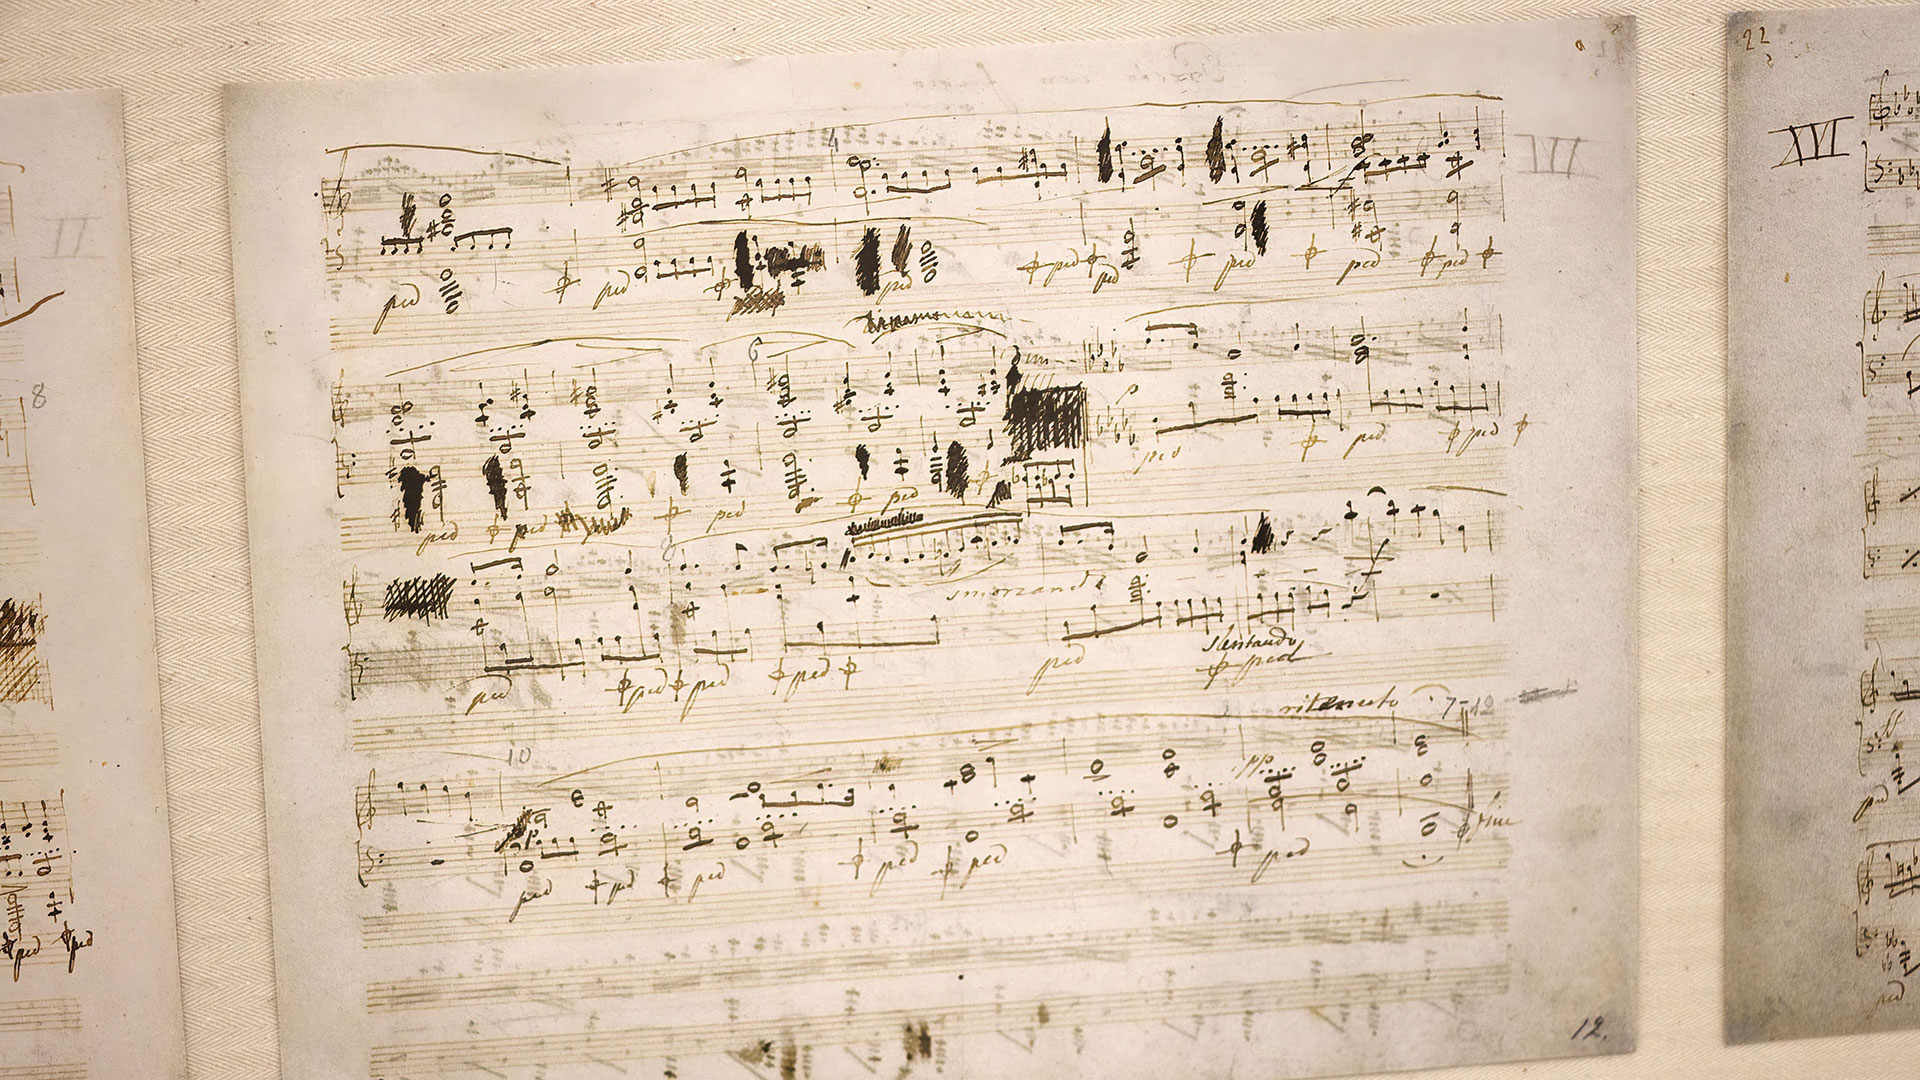 22
XVI
III
II
8
4
ped ped ped ped ped ped ped ped
6
dim
p
ped ped ped ped ped ped
8
smorzando
ped ped ped ped ped
slentando
ped
ritenuto 7-12
10
pp
fine
ped ped ped ped ped ped
ped ped
ff
ped
ped
12.